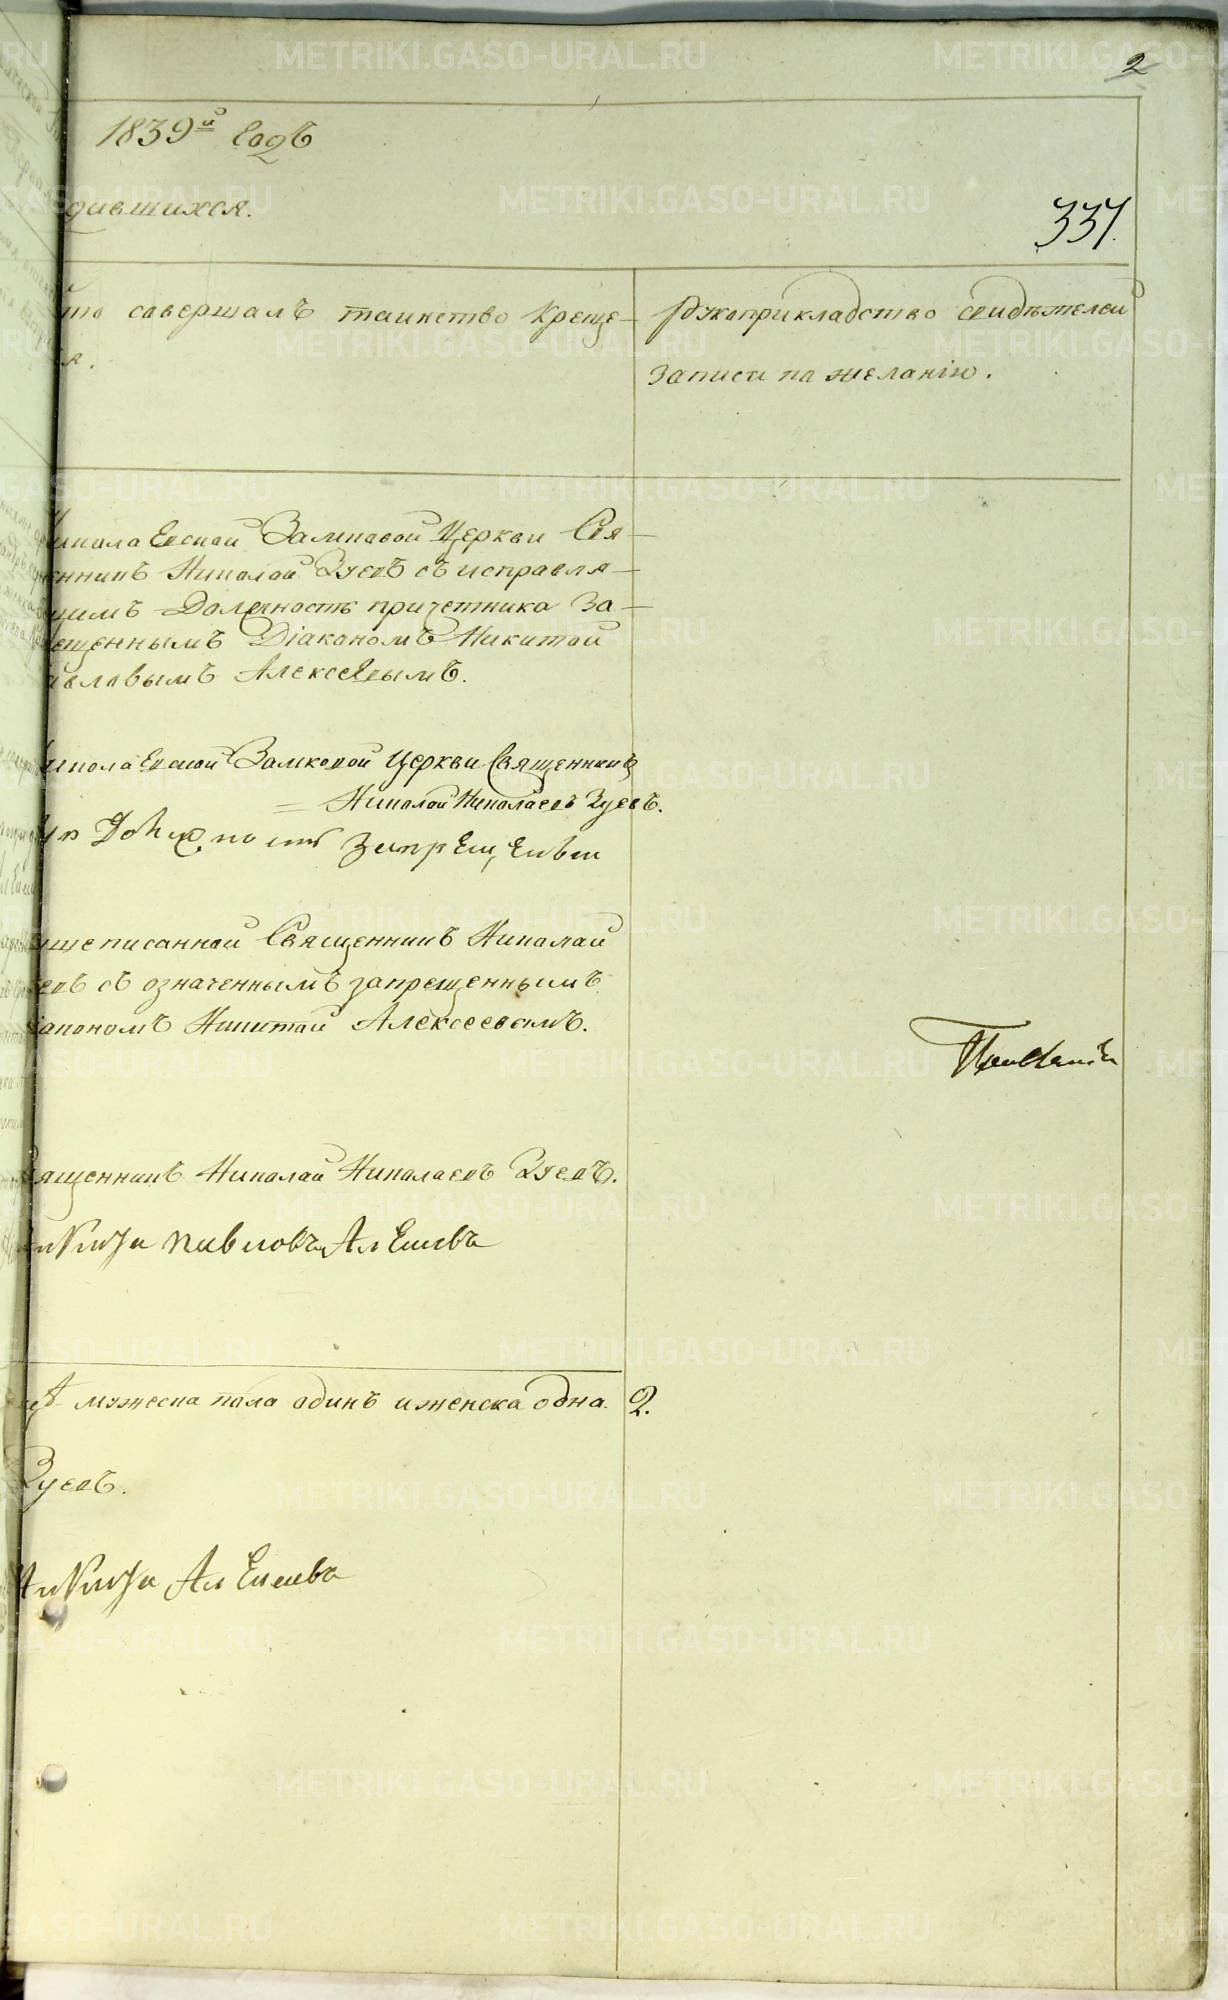 2
1839й Годъ
дившихся.
337.
то совершалъ таинство Креще-
я.
Рукоприкладство свидѣтелей
записи по желанію.
иколаевской Замковой Церкви Свя-
енникъ Николай Зуевъ съ исправля-
щимъ Должность причетника За-
ещеннымъ Діакономъ Никитой
авловымъ Алексѣевымъ.
иколаевской Замковой Церкви Священникъ
Николай Николаевъ Зуевъ.
ышеписанной Священникъ Николай
евъ съ означеннымъ запрещеннымъ
іакономъ Никитой Алексеевымъ.
вященникъ Николай Николаевъ Зуевъ.
икита Павловъ
мужеска пола одинъ и женска одна. 2.
Зуевъ.
Никита
METRIKI.GASO-URAL.RU